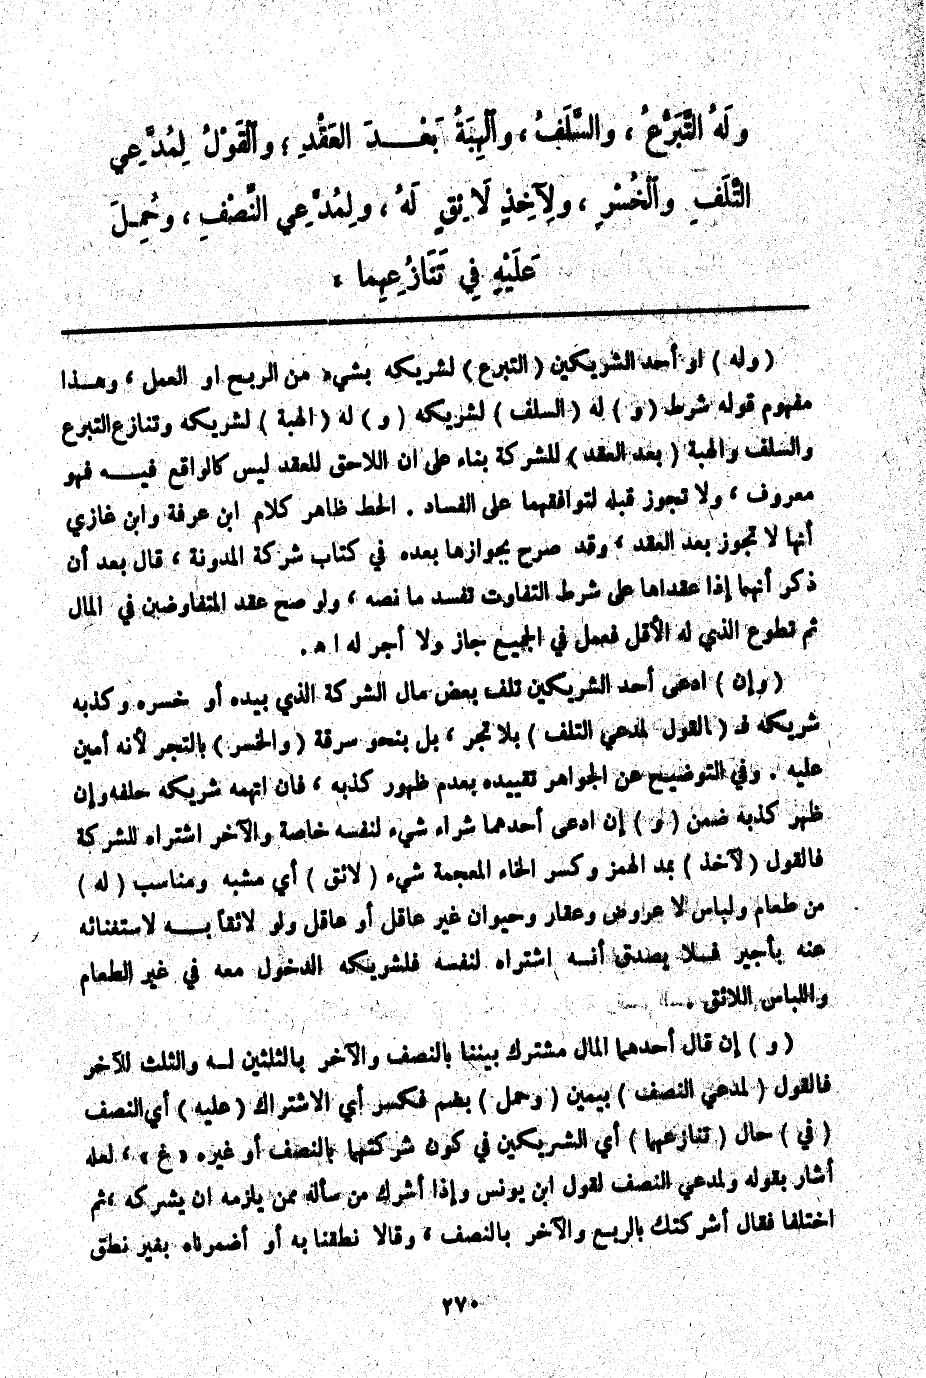 وَلَهُ التَّبَرُّعُ ، والسَّلَفُ ، وٱلْهِبَةُ بَعْــدَ العَقْدِ ؛ وٱلْقَوْلُ لِمُدَّعِي
التَّلَفِ وٱلْخُسْرِ ، ولِآخِذٍ لَائِقٍ لَهُ ، ولِمُدَّعِي النِّصْفِ ، وحُمِلَ
عَلَيْهِ فِي تَنَازُعِهِما ،
( وله ) أو أحد الشريكين ( التبرع ) لشريكه بشيء من الربح او العمل ، وهــذا
مفهوم قوله شرط ( و ) له ( السلف ) لشريكه ( و ) له ( الهبة ) لشريكه وتنازع التبرع
والسلف والهبة ( بعد العقد ) للشركة بناء على ان اللاحق للعقد ليس كالواقع فيــه فهو
معروف ، ولا تجوز قبله لتوافقهما على الفساد . الحط ظاهر كلام ابن عرفة وابن غازي
أنها لا تجوز بعد العقد ، وقد صرح بجوازها بعده في كتاب شركة المدونة ، قال بعد أن
ذكر أنهما إذا عقداها على شرط التفاوت تفسد ما نصه ، ولو صح عقد المتفاوضين في المال
ثم تطوع الذي له الأقل فعمل في الجميع جاز ولا أجر له ا هـ .
( وإن ) ادعى أحد الشريكين تلف بعض مال الشركة الذي بيده أو خسره وكذبه
شريكه فـ ( القول لمدعي التلف ) بلا تجر ، بل بنحو سرقة ( والخسر ) بالتجر لأنه أمين
عليه . وفي التوضيح عن الجواهر تقييده بعدم ظهور كذبه ، فان اتهمه شريكه حلفه وإن
ظهر كذبه ضمن ( و ) إن ادعى أحدهما شراء شيء لنفسه خاصة والآخر اشتراه للشركة
فالقول ( لآخذ ) بمد الهمز وكسر الخاء المعجمة شيء ( لائق ) أي مشبه ومناسب ( له )
من طعام ولباس لا عروض وعقار وحيوان غير عاقل أو عاقل ولو لائقاً بــه لاستغنائه
عنه بأجير فــلا يصدق أنــه اشتراه لنفسه فلشريكه الدخول معه في غير الطعام
واللباس اللائق .
( و ) إن قال أحدهما المال مشترك بيننا بالنصف والآخر بالثلثين لــه والثلث للآخر
فالقول ( لمدعي النصف ) بيمين ( وحمل ) بضم فكسر أي الاشتراك ( عليه ) أي النصف
( في ) حال ( تنازعهما ) أي الشريكين في كون شركتهما بالنصف أو غيره « غ » ، لعله
أشار بقوله ولمدعي النصف لقول ابن يونس وإذا أشرك من سأله ممن يلزمه ان يشركه ، ثم
اختلفا فقال أشركتك بالربع والآخر بالنصف ، وقالا نطقنا به أو أضمرناه بغير نطق
٢٧٠